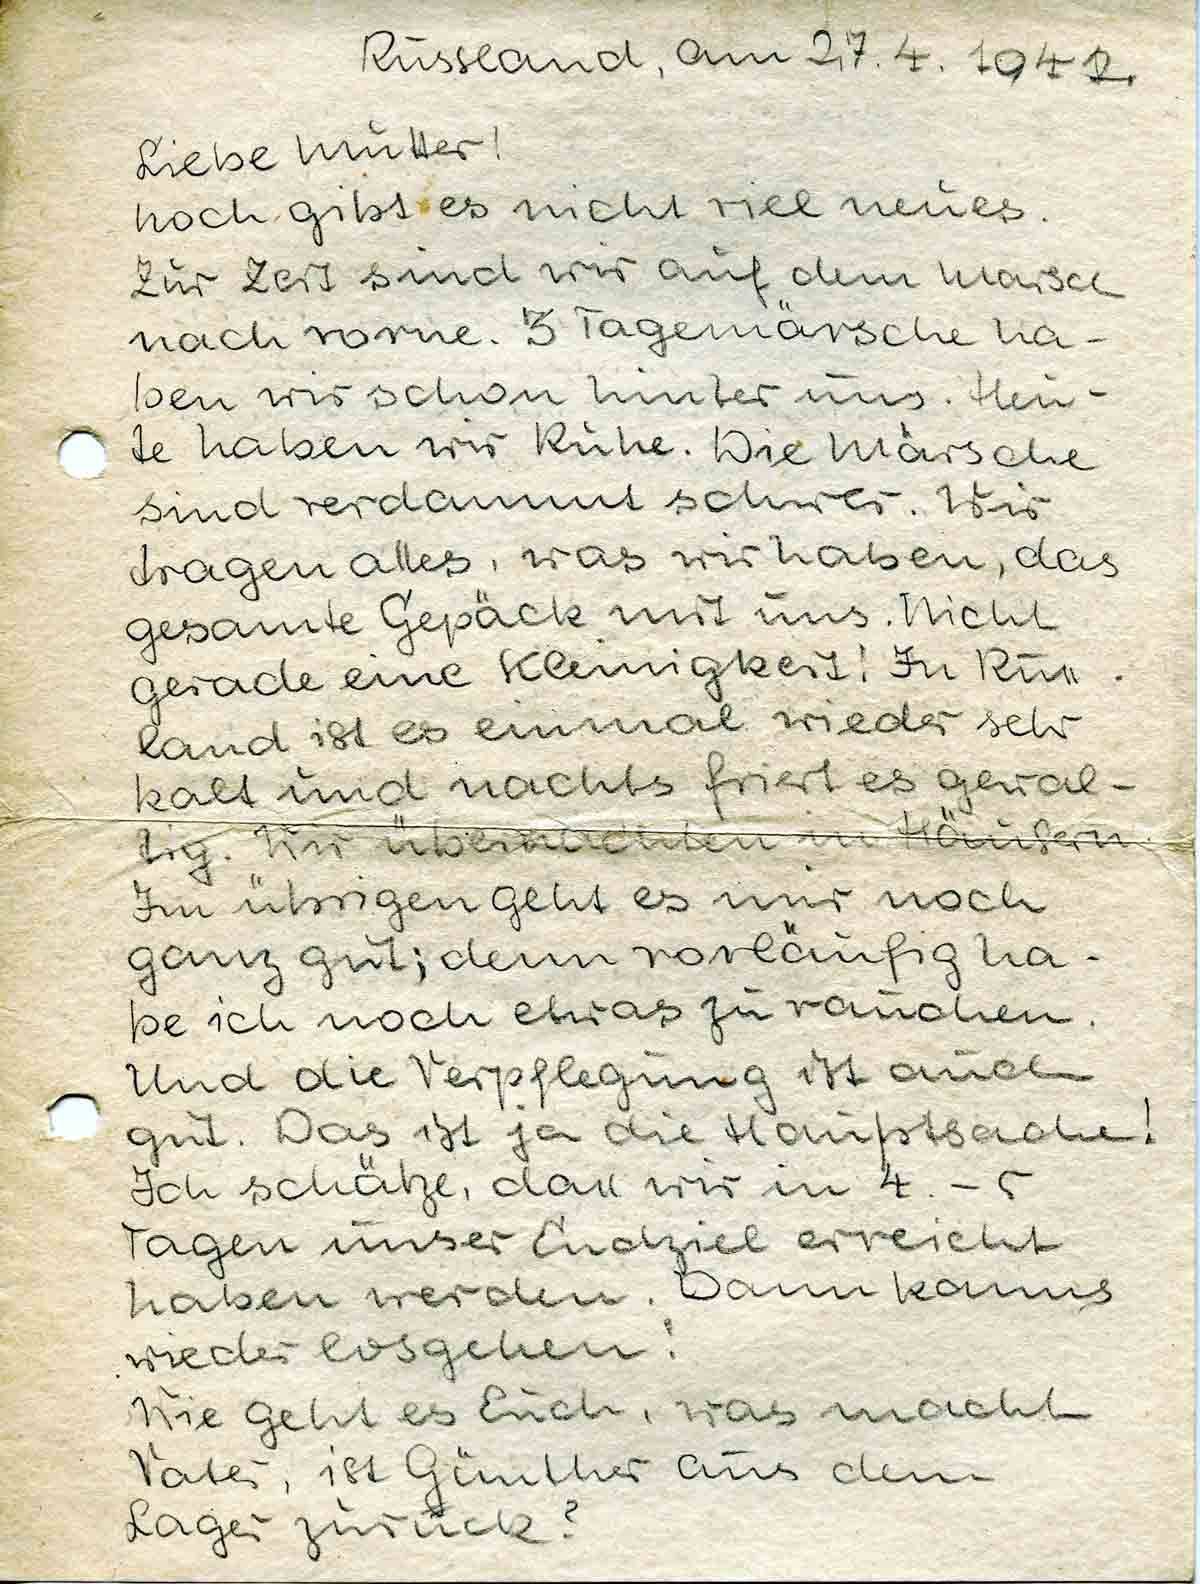 Russland, am 27.4.1942.
Liebe Mutter!
Noch gibt es nicht viel neues.
Zur Zeit sind wir auf dem Marsch
nach vorne. 3 Tagemärsche ha-
ben wir schon hinter uns. Heu-
te haben wir Ruhe. Die Märsche
sind verdammt schwer. Wir
tragen alles, was wir haben, das
gesamte Gepäck mit uns. Nicht
gerade eine Kleinigkeit! In Ruß-
land ist es einmal wieder sehr
kalt und nachts friert es gewal-
tig. Wir übernachten in Häusern.
Im übrigen geht es mir noch
ganz gut; denn vorläufig ha-
be ich noch etwas zu rauchen.
Und die Verpflegung ist auch
gut. Das ist ja die Hauptsache!
Ich schätze, daß wir in 4.-5
Tagen unser Endziel erreicht
haben werden. Dann kanns
wieder losgehen!
Wie geht es Euch, was macht
Vater, ist Günther aus dem
Lager zurück?